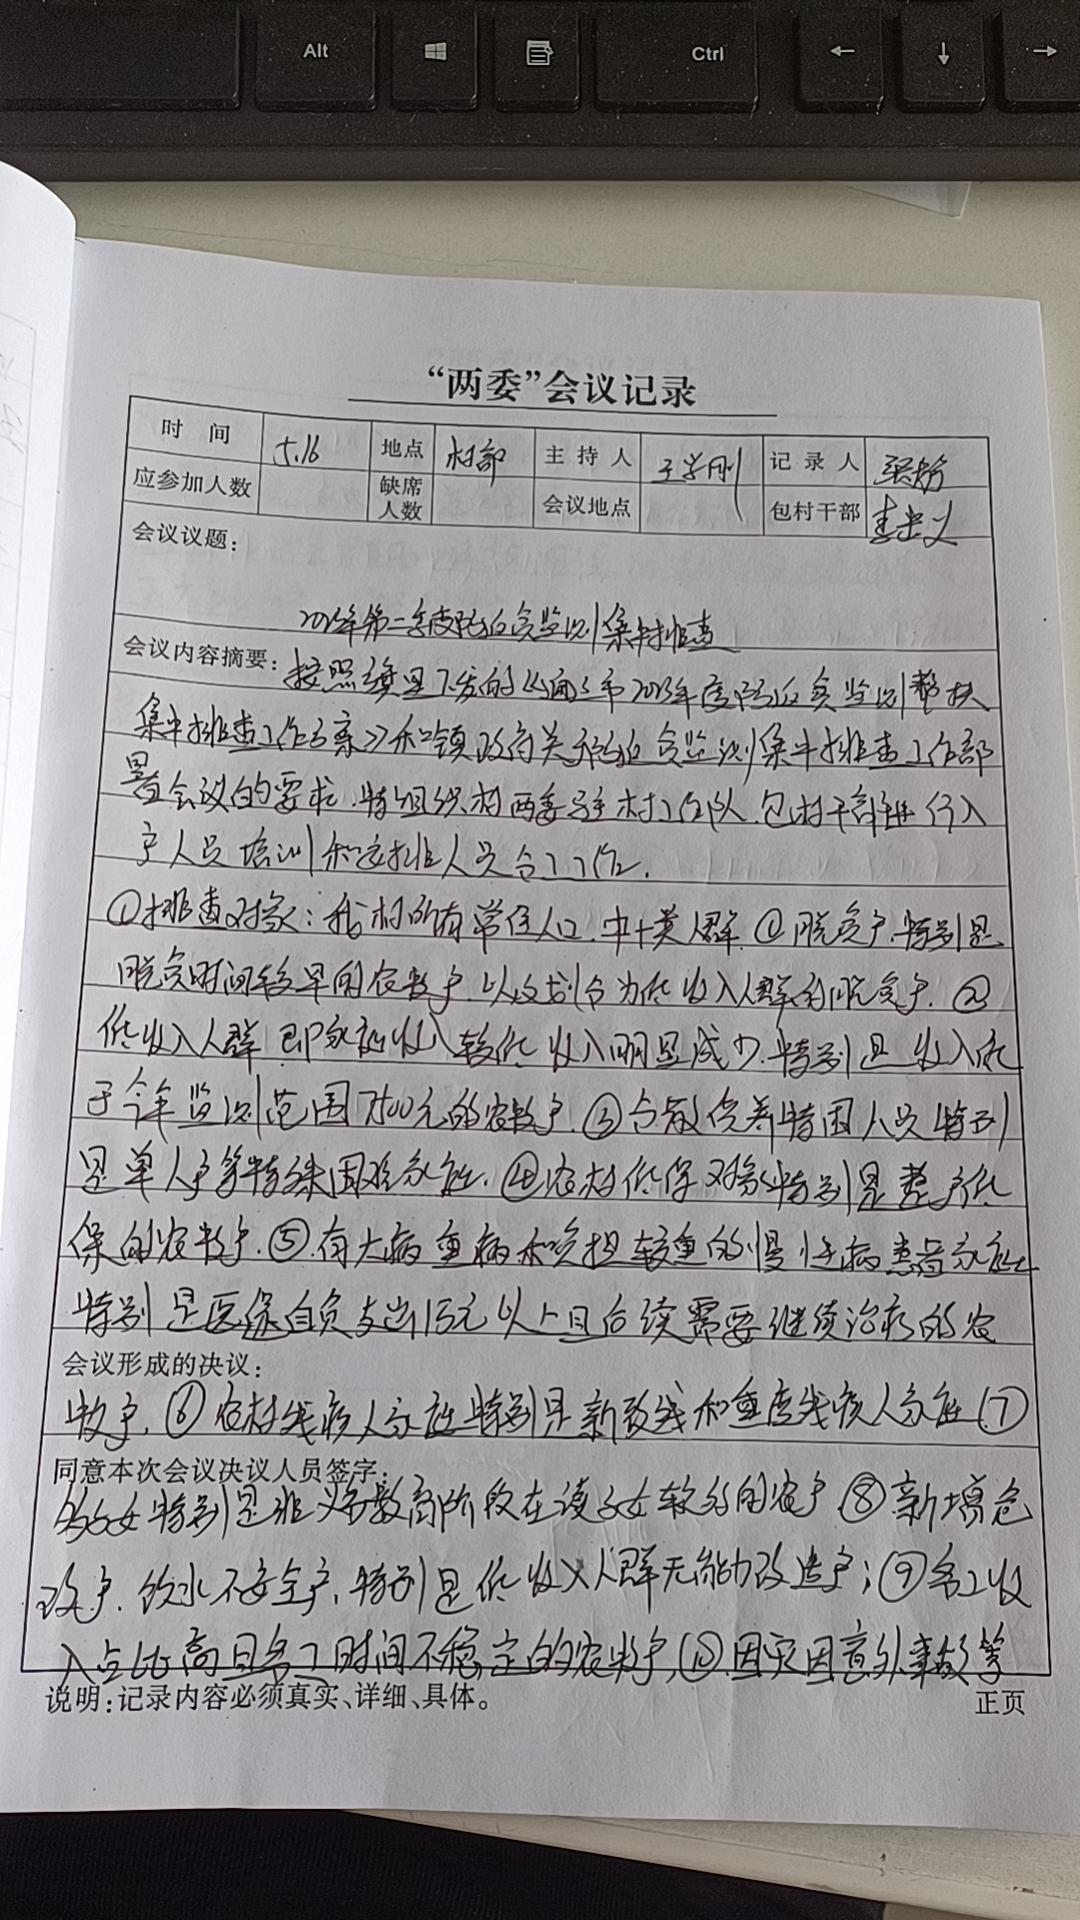 Alt Ctrl ← ↓ →
“两委”会议记录
时 间 5.16 地点 村部 主 持 人 于学刚 记 录 人
应参加人数 缺席人数 会议地点 包村干部
会议议题：
2023年第二季度防返贫监测集中排查
会议内容摘要：按照县里下发的《通辽市2023年度防返贫监测帮扶
集中排查工作方案》和镇政府关于防返贫监测集中排查工作部
署会议的要求，特组织村两委驻村工作队、包村干部进行入
户人员培训和应排人员分工工作.
①排查对象：我村所有常住人口.中十类人群.①脱贫户.特别是
脱贫时间较早的农牧户.以及划分为低收入人群的脱贫户.②
低收入人群 即家庭收入较低 收入明显减少.特别是收入低
于今年监测范围7500元的农牧户.③分散供养特困人员 特别
是单人户等特殊困难家庭.④农村低保对象特别是整户低
保的农牧户.⑤有大病重病和负担较重的慢性病患者家庭
特别是医保自负支出1万元以上且后续需要继续治疗的农
会议形成的决议：
牧户.⑥农村残疾人家庭特别是新致残和重度残疾人家庭⑦
同意本次会议决议人员签字：
多子女特别是非义务教育阶段在读子女较多的农户⑧新增危
改户.饮水不安全户.特别是低收入人群无能力改造户；⑨务工收
入占比高且务工时间不稳定的农牧户，⑩.因灾因意外事故等
说明：记录内容必须真实、详细、具体。 正页